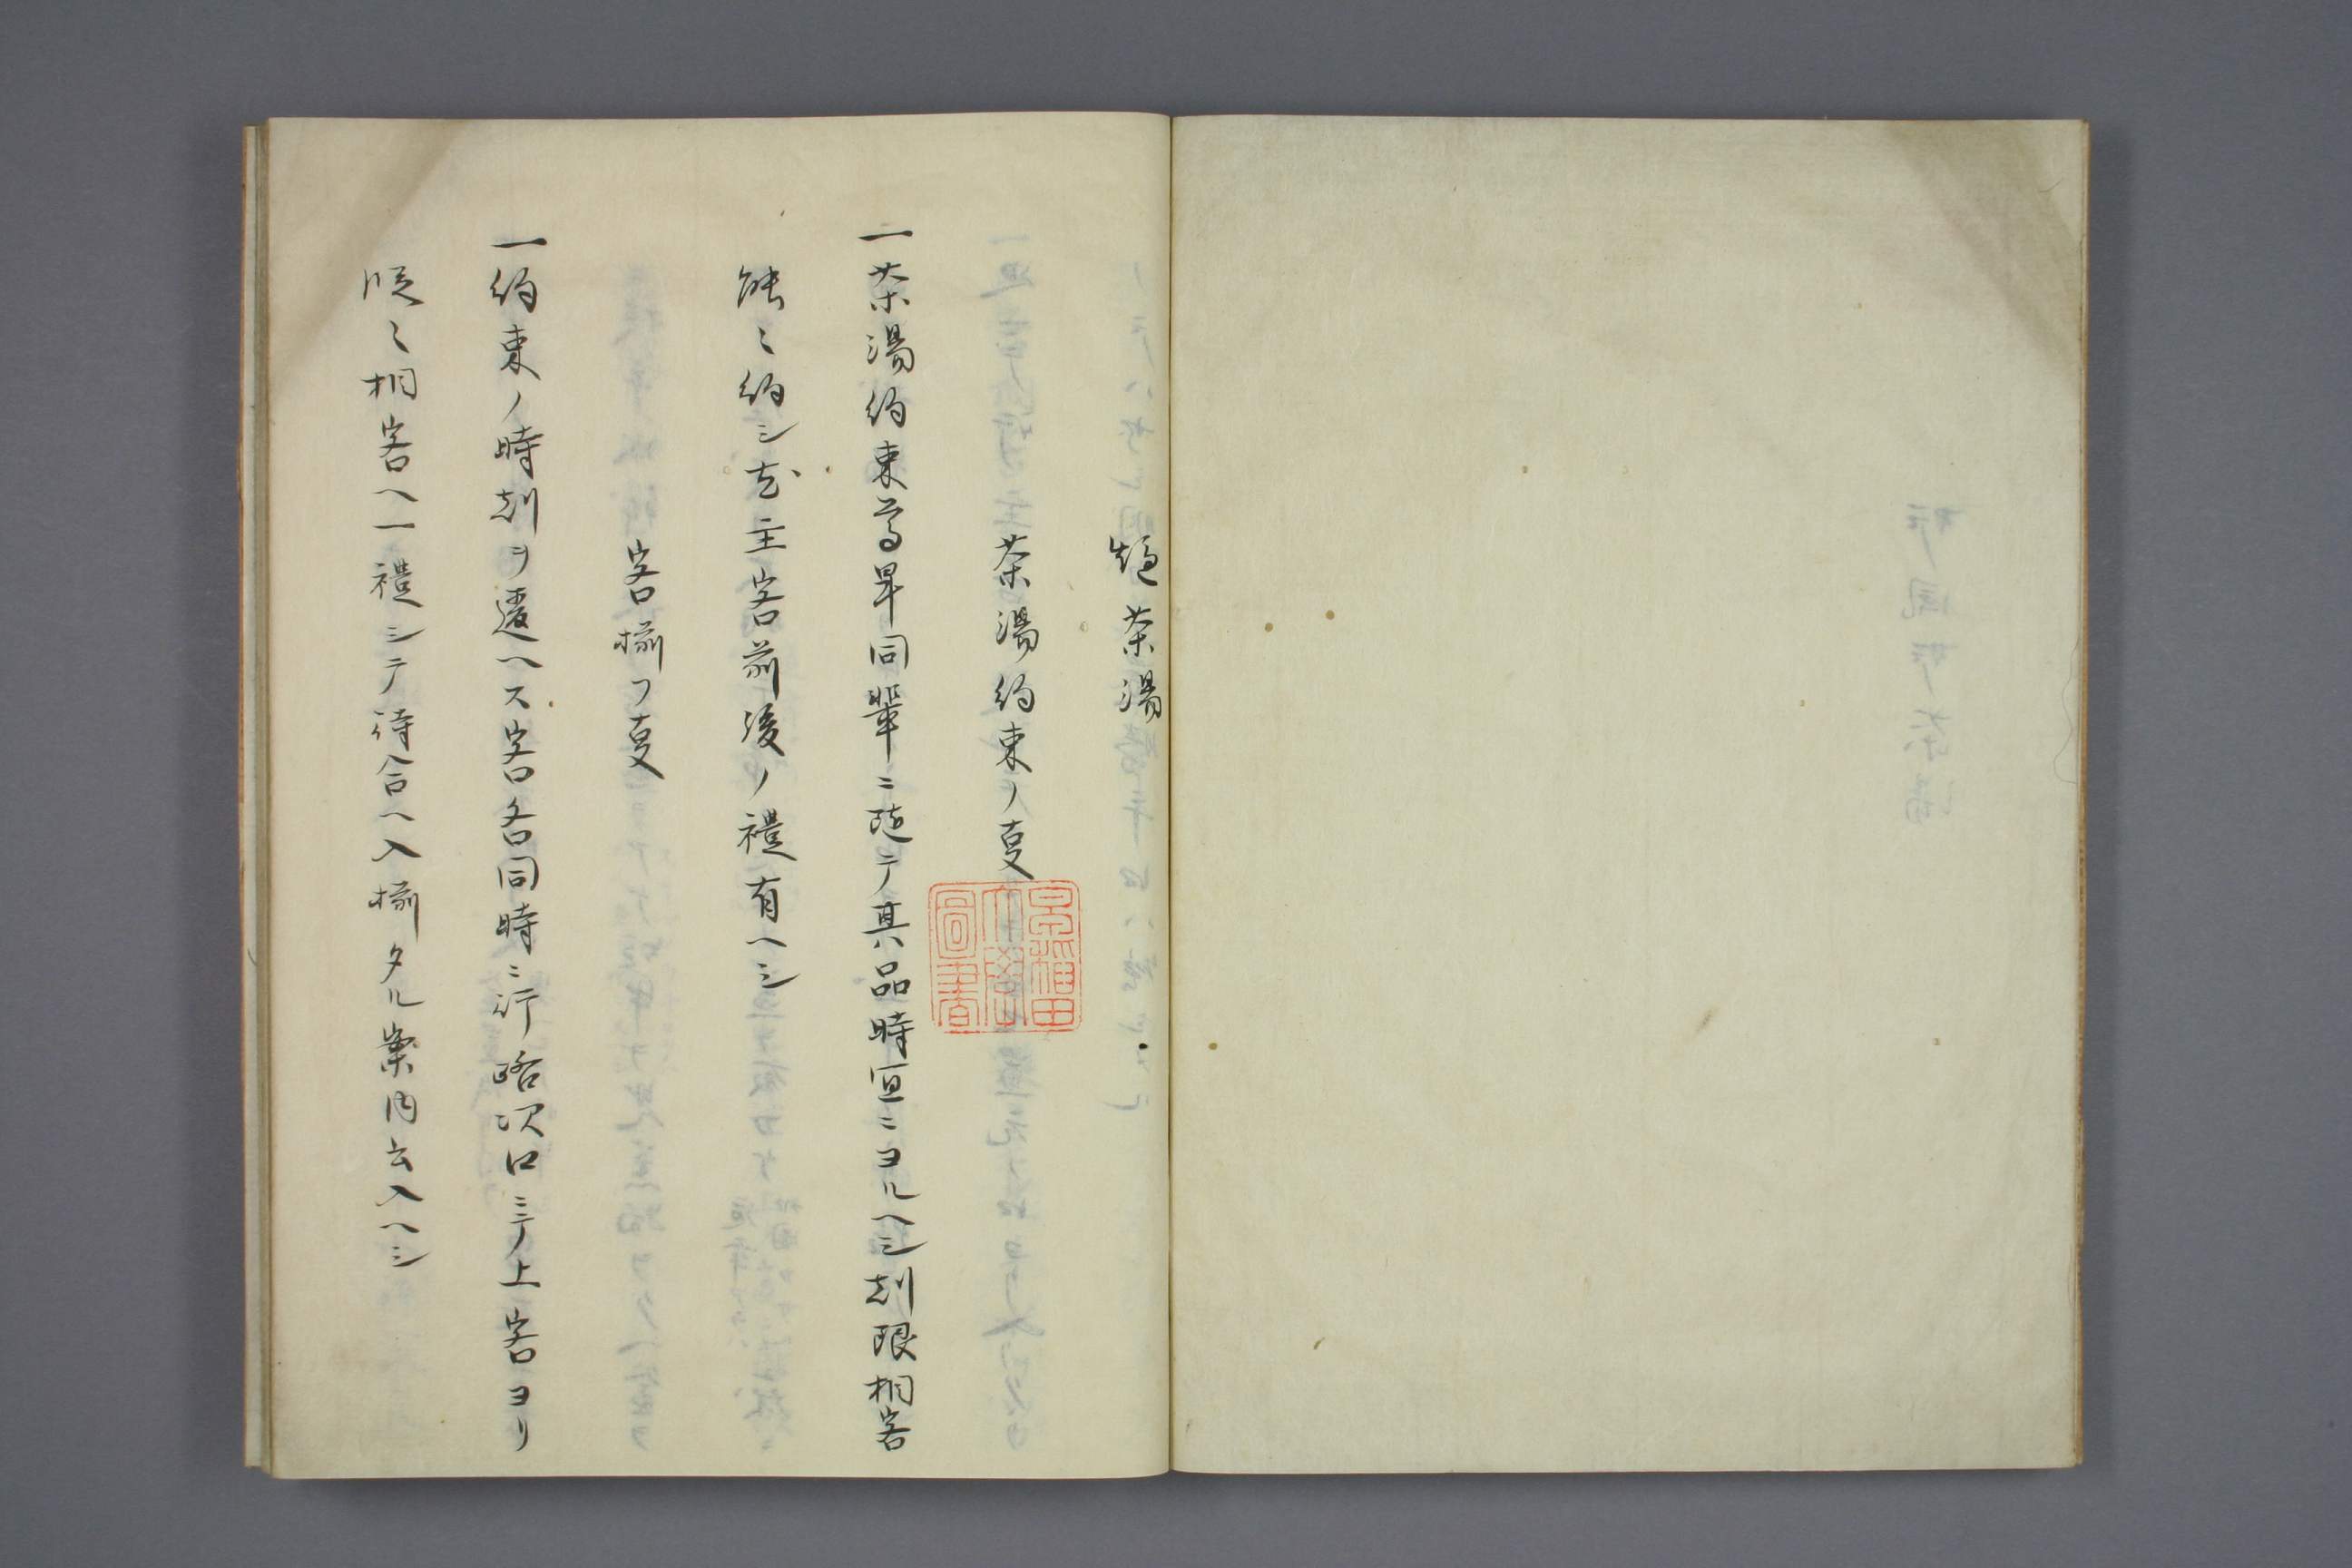 爐茶湯
茶湯約束ノ叓
一茶湯約束尊卑同輩ニ随テ其品時宜ニヨルヘシ刻限相客
能〻約シ尤主客前後ノ禮有ヘシ
客揃フ叓
一約束ノ時刻ヲ違ヘス客各同時ニ行路次口ニテ上客ヨリ
段〻相客ヘ一禮シテ待合ヘ入揃タル案内云入ヘシ
早稲田
大學
圖書